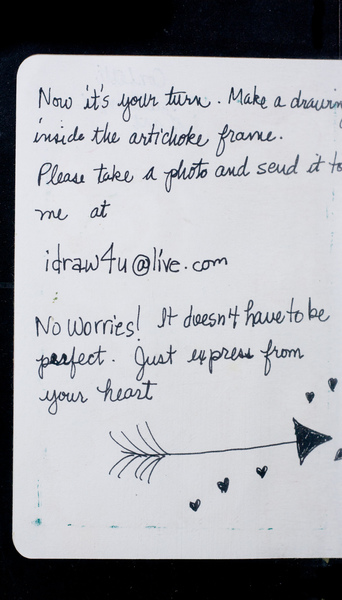 Now it's your turn. Make a drawing
inside the artichoke frame.
Please take a photo and send it to
me at
idraw4u@live.com
No worries! It doesn't have to be
perfect. Just express from
your heart